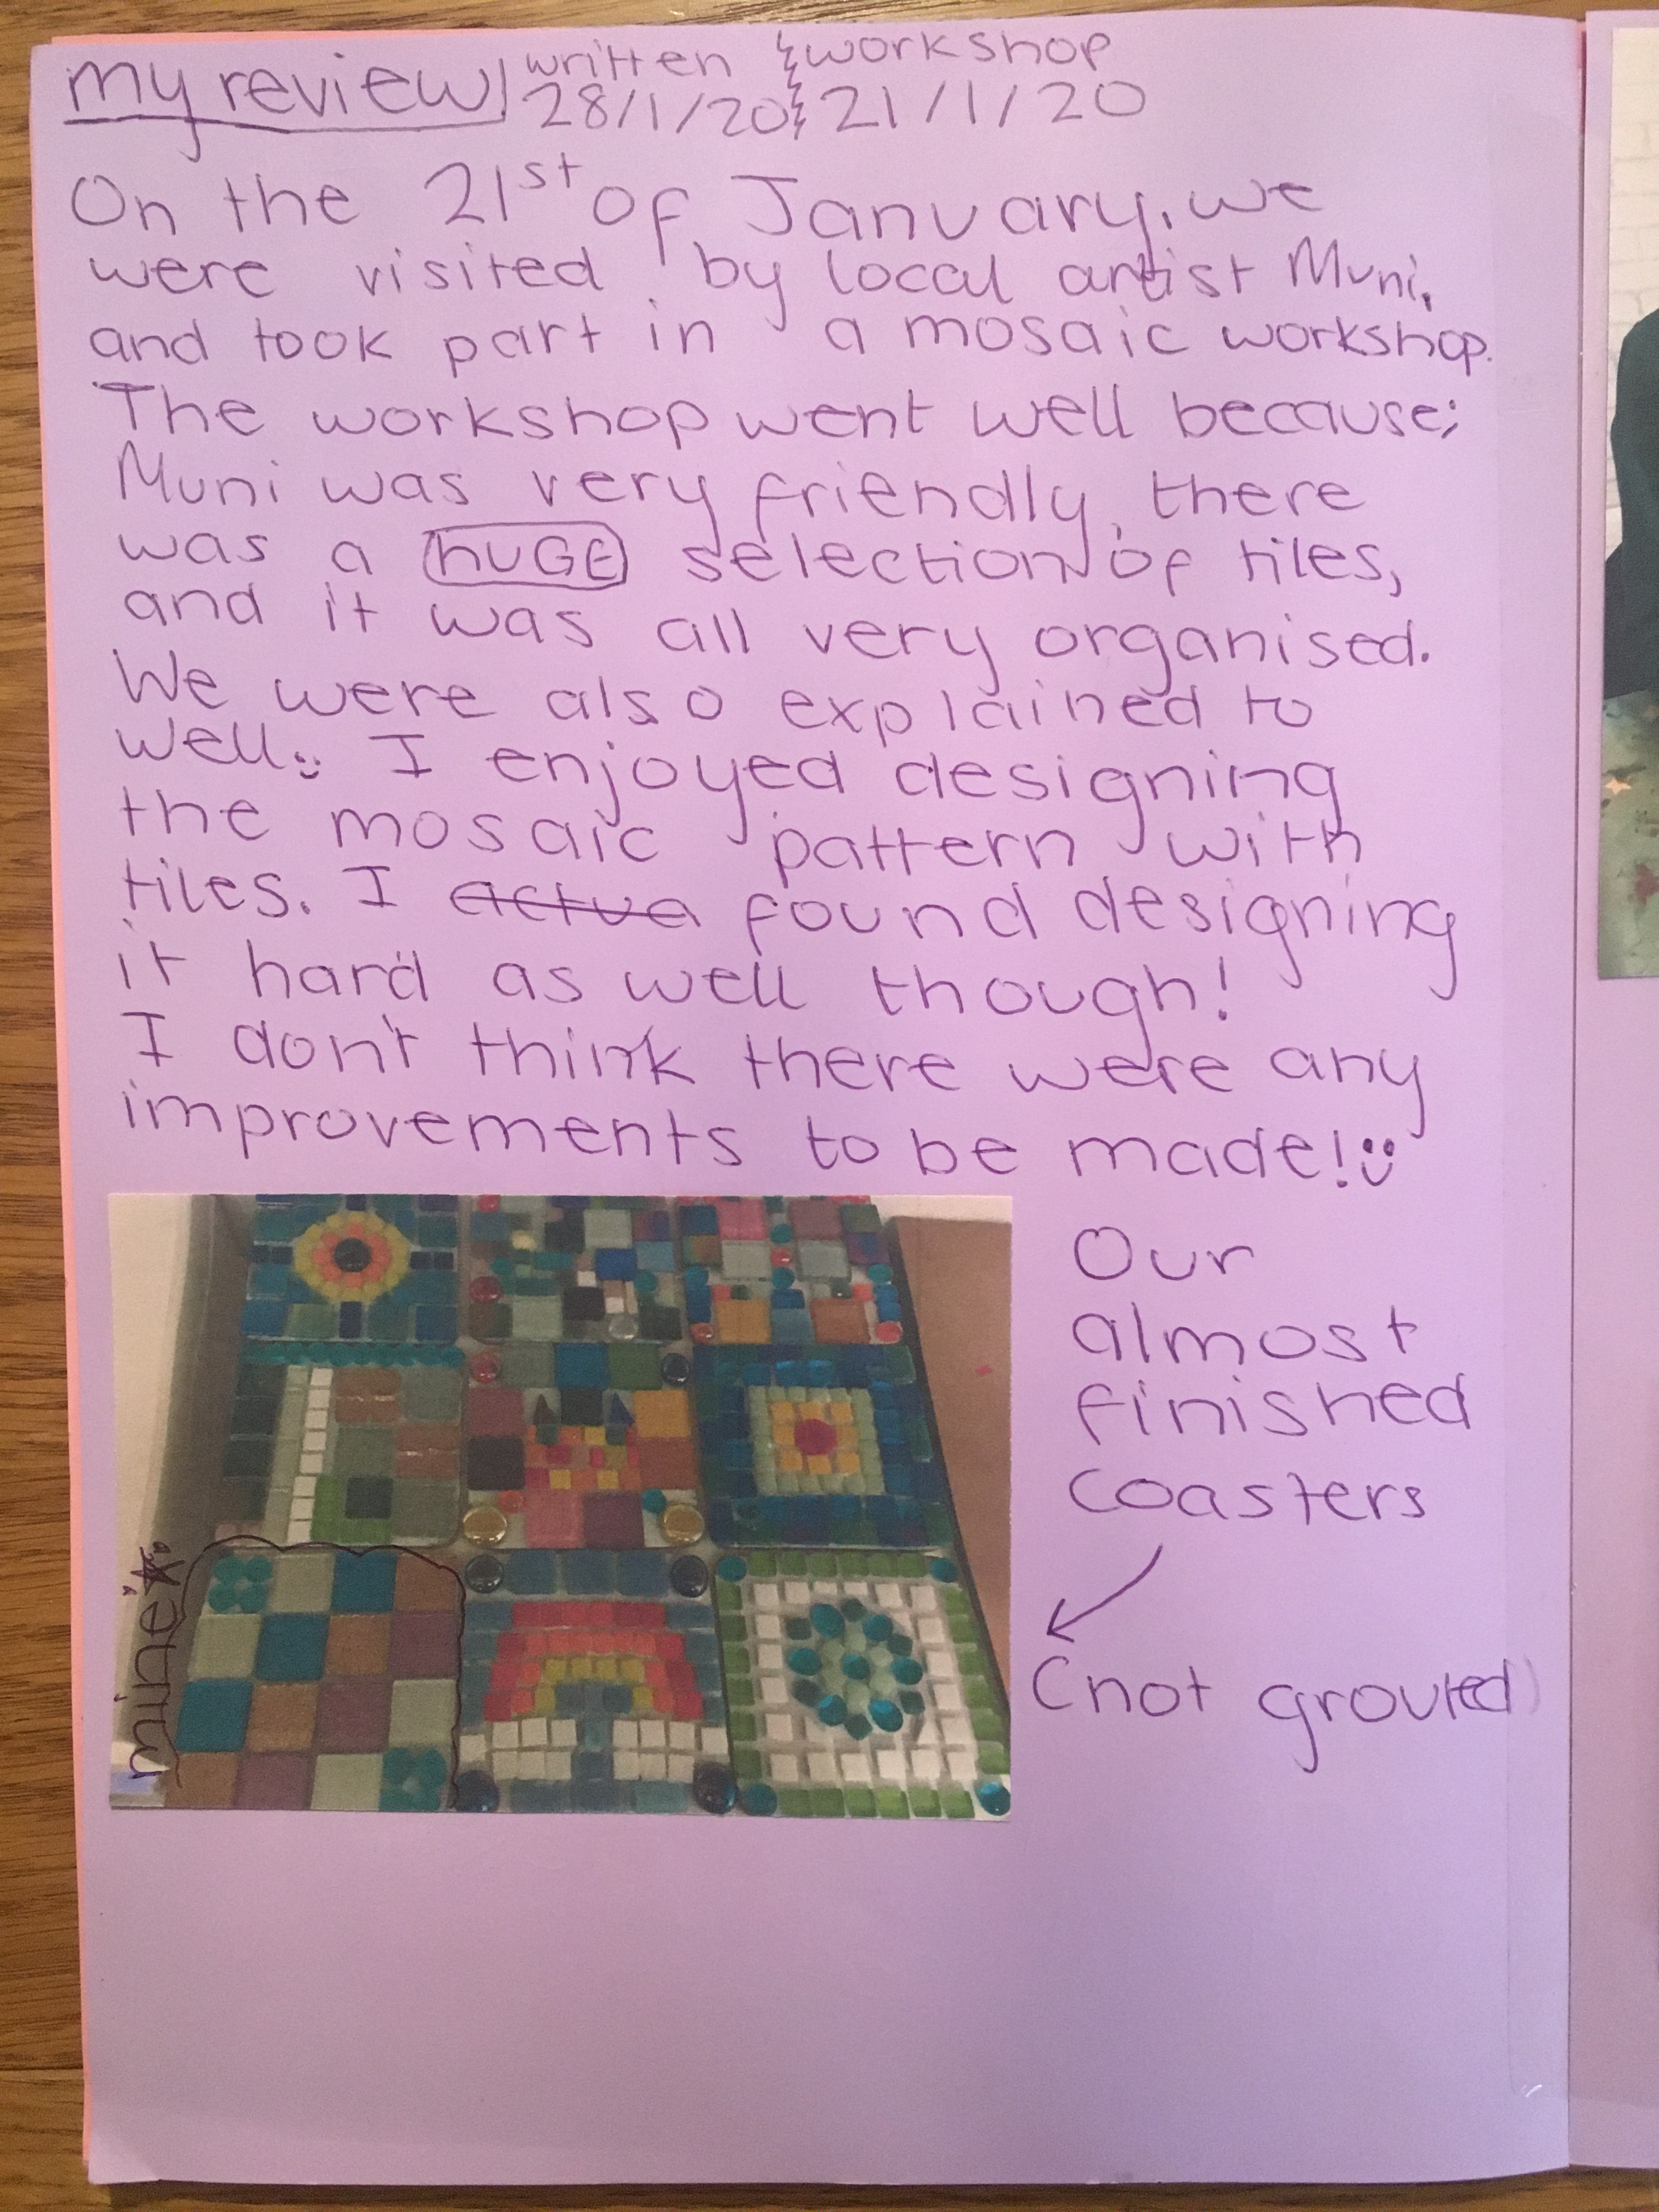 my review
written workshop
28/1/20 21/1/20
On the 21st of January, we
were visited by local artist Muni,
and took part in a mosaic workshop.
The workshop went well because;
Muni was very friendly, there
was a hUGE selection of tiles,
and it was all very organised.
We were also explained to
well. I enjoyed designing
the mosaic pattern with
tiles. I actua found designing
it hard as well though!
I don't think there were any
improvements to be made!
Our
almost
finished
coasters
(not grouted)
mine